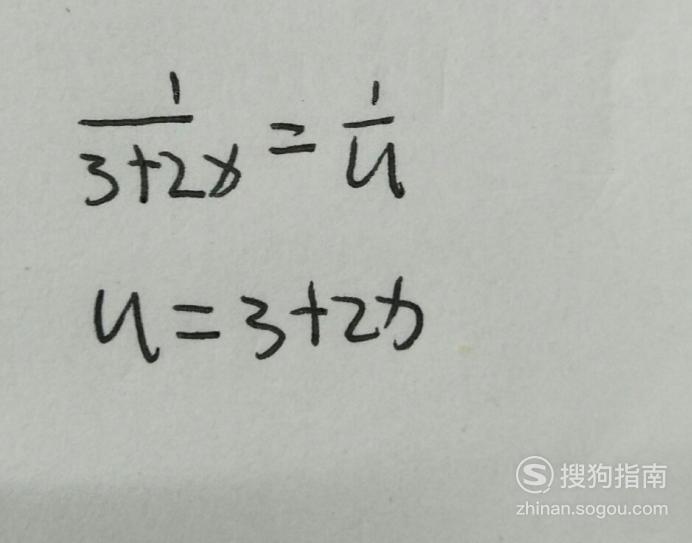 1/(3+2x) = 1/u
u=3+2x
搜狗指南
zhinan.sogou.com